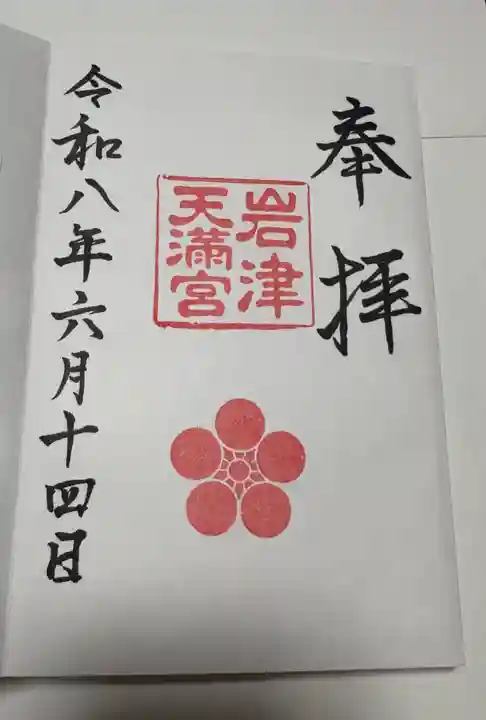 奉拝
岩津
天満宮
令和八年六月十四日